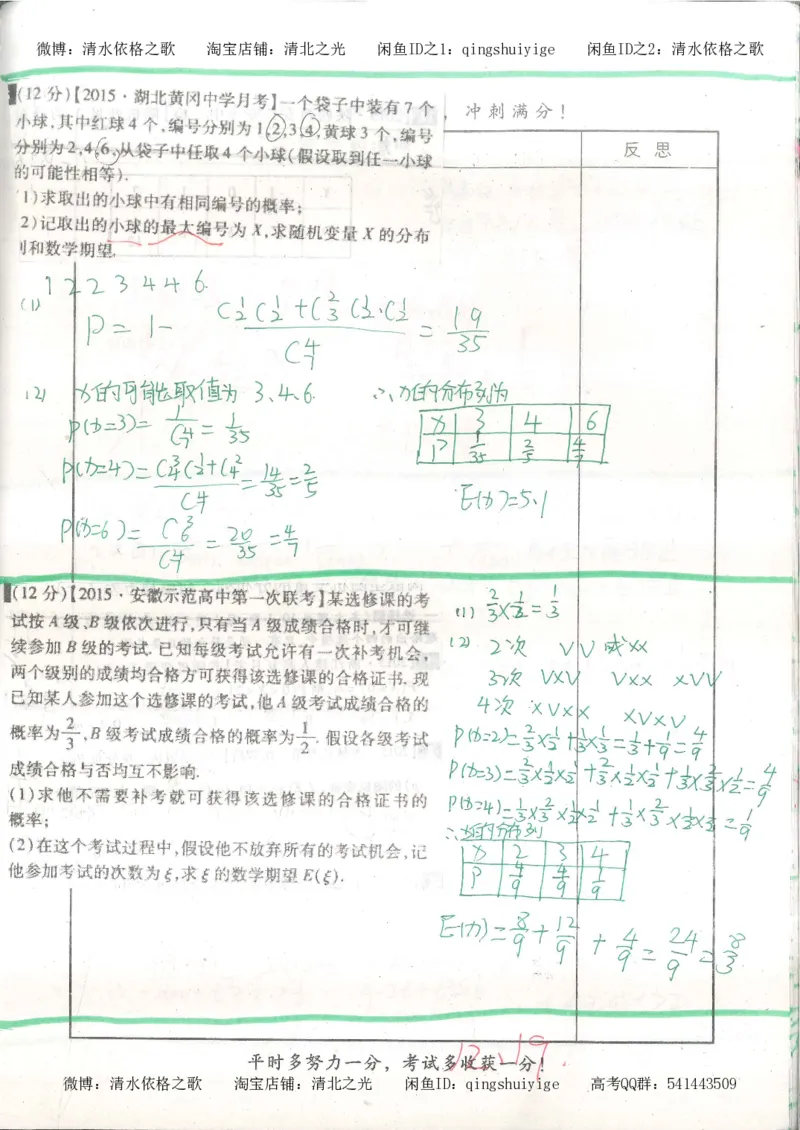 微博：清水依格之歌 淘宝店铺：清北之光 闲鱼ID之1：qingshuiyige 闲鱼ID之2：清水依格之歌
，冲刺满分！
反思
(12分)【2015·湖北黄冈中学月考】一个袋子中装有7个
小球,其中红球4个,编号分别为1,2,3,4,黄球3个,编号
分别为2,4,6,从袋子中任取4个小球(假设取到任一小球
的可能性相等).
1)求取出的小球中有相同编号的概率;
2)记取出的小球的最大编号为X,求随机变量X的分布
列和数学期望.
1 2 2 3 4 4 6
(1) P = 1- (C½C½+C²₃C½·C½)/C⁴₇ = 19/35
(2) X的可能取值为 3、4、6.
P(X=3)= 1/C⁴₇ = 1/35
P(X=4)= (C³₄C½+C²₄)/C⁴₇ = 14/35 = 2/5
P(X=6)= C³₆/C⁴₇ = 20/35 = 4/7
∴X的分布列为
X 3 4 6
P 1/35 2/5 4/7
E(X)=5.1
(12分)【2015·安徽示范高中第一次联考】某选修课的考
试按A级,B级依次进行,只有当A级成绩合格时,才可继
续参加B级的考试.已知每级考试允许有一次补考机会,
两个级别的成绩均合格方可获得该选修课的合格证书.现
已知某人参加这个选修课的考试,他A级考试成绩合格的
概率为2/3,B级考试成绩合格的概率为1/2.假设各级考试
成绩合格与否均互不影响.
(1)求他不需要补考就可获得该选修课的合格证书的
概率;
(2)在这个考试过程中,假设他不放弃所有的考试机会,记
他参加考试的次数为ξ,求ξ的数学期望E(ξ).
(1) 2/3×1/2=1/3
(2) 2次 ∨∨或××
3次 ∨×∨ ∨×× ×∨∨
4次 ×∨×× ×∨×∨
P(X=2)=2/3×1/2+1/3×1/3=1/3+1/9=4/9
P(X=3)=2/3×1/2×1/2+2/3×1/2×1/2+1/3×2/3×1/2=4/9
P(X=4)=1/3×2/3×1/2×1/2+1/3×2/3×1/2×1/2=1/9
∴X的分布列
X 2 3 4
P 4/9 4/9 1/9
E(X)=8/9+12/9+4/9=24/9=8/3
12、19.
平时多努力一分，考试多收获一分！
微博：清水依格之歌 淘宝店铺：清北之光 闲鱼ID：qingshuiyige 高考QQ群：541443509